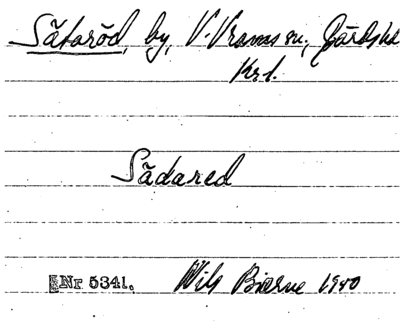 Sätaröd, by, V. Vrams sn., Gärds hd
Krl.
Sädared
Nr 5341. Nils Bierne 1940